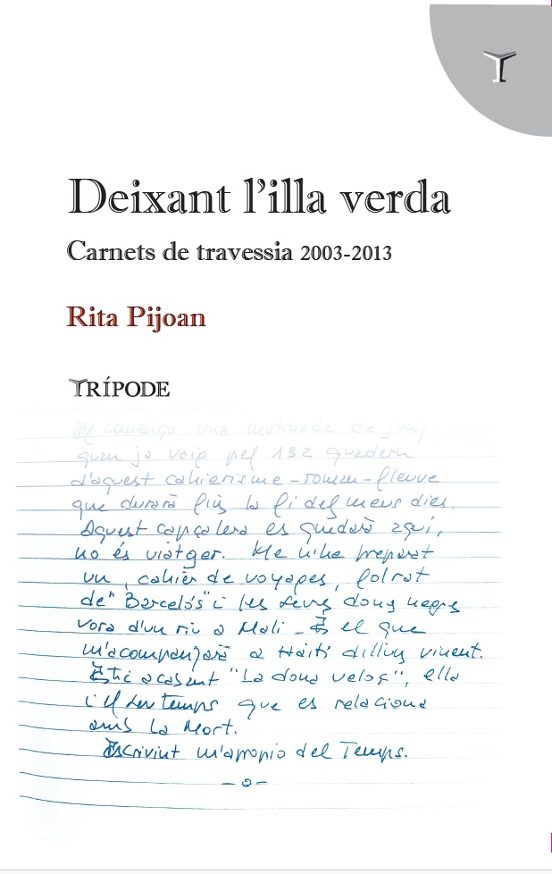 Deixant l'illa verda
Carnets de travessia 2003-2013
Rita Pijoan
TRÍPODE
començo una matinada de juny
quan ja vaig pel 132 quadern
d'aquest cahierisme-roman-fleuve
que durarà fins la fi dels meus dies.
Aquest capçalera es quedarà aquí,
no és viatger. Me n'he preparat
un, cahier de voyages, folrat
de "Barcelós" i les seves dones negres
vora d'un riu a Mali - És el que
m'acompanyarà a Haití dilluns vinent.
Estic acabant "La dona veloç", ella
i el seu temps que es relaciona
amb la Mort.
Escrivint m'apropio del Temps.